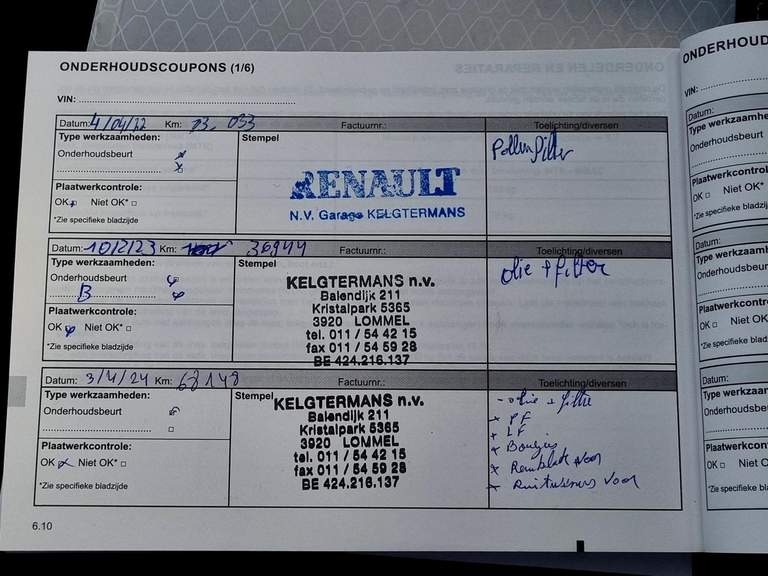 ONDERHOUDSCOUPONS (1/6)
VIN:
Datum: 4/04/22 Km: 033 Factuurnr.: Toelichting/diversen
Type werkzaamheden: Stempel Pollenfilter
Onderhoudsbeurt
Plaatwerkcontrole:
OK Niet OK*
*Zie specifieke bladzijde
RENAULT
N.V. Garage KELGTERMANS
Datum: 10/2/23 Km: 36944 Factuurnr.: Toelichting/diversen
Type werkzaamheden: Stempel olie + filter
Onderhoudsbeurt
B
Plaatwerkcontrole:
OK Niet OK*
*Zie specifieke bladzijde
KELGTERMANS n.v.
Balendijk 211
Kristalpark 5365
3920 LOMMEL
tel. 011 / 54 42 15
fax 011 / 54 59 28
BE 424.216.137
Datum: 3/4/24 Km: 68148 Factuurnr.: Toelichting/diversen
Type werkzaamheden: Stempel
Onderhoudsbeurt
Plaatwerkcontrole:
OK Niet OK*
*Zie specifieke bladzijde
KELGTERMANS n.v.
Balendijk 211
Kristalpark 5365
3920 LOMMEL
tel. 011 / 54 42 15
fax 011 / 54 59 28
BE 424.216.137
- olie + filter
+ PF
+ LF
* Bougies
* Remblok voor
* Ruitwissers voor
6.10
ONDERHOUD
VIN:
Datum:
Type werkzaamhe
Onderhoudsbeurt
Plaatwerkcontrole:
OK Niet OK*
*Zie specifieke bladz
Datum:
Type werkzaamh
Onderhoudsbeur
Plaatwerkcontro
OK Niet OK
*Zie specifieke blad
Datum:
Type werkzaam
Onderhoudsbe
Plaatwerkcon
OK Niet O
*Zie specifieke bl